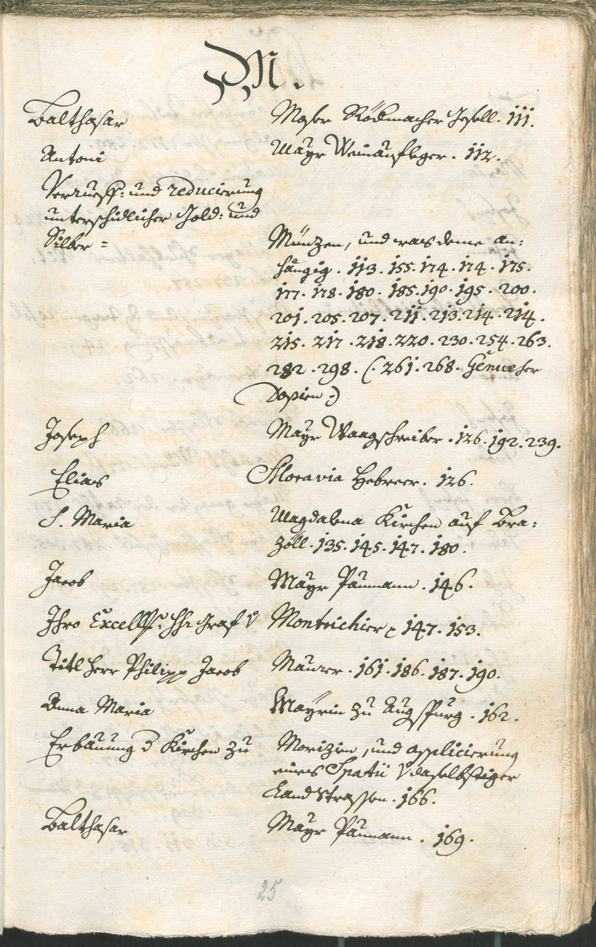 M.
Balthasar Moser Rödlmacher Gesell. 111.
Antoni Mayr Weinaufleger. 112.
Verrueff: und reducierung
unterschidlicher Gold: und
Silber =
Münzen, und was deme an:
hängig. 113. 155. 174. 174. 175.
177. 178. 180. 185. 190. 195. 200.
201. 205. 207. 211. 213. 214. 214.
215. 217. 218. 220. 230. 254. 263.
282. 298. (: 261. 268. Genueser
Dopien :)
Joseph Mayr Waagschreiber. 126. 192. 239.
Elias Moravia Hebreer. 126.
S. Maria Magdalena Kirchen auf Bra:
zöll. 135. 145. 147. 180.
Jacob Mayr Paumann. 146.
Ihro Excell: hh: Graf v Montrichier 147. 153.
Titl Herr Philipp Jacob Maurer. 161. 186. 187. 190.
Anna Maria Mayrin zu Augspurg. 162.
Erbauung d Kirchen zu Morizin, und applicierung
eines Spatii v daselbstiger
Landstrassen. 166.
Balthasar Mayr Paumann. 169.
25